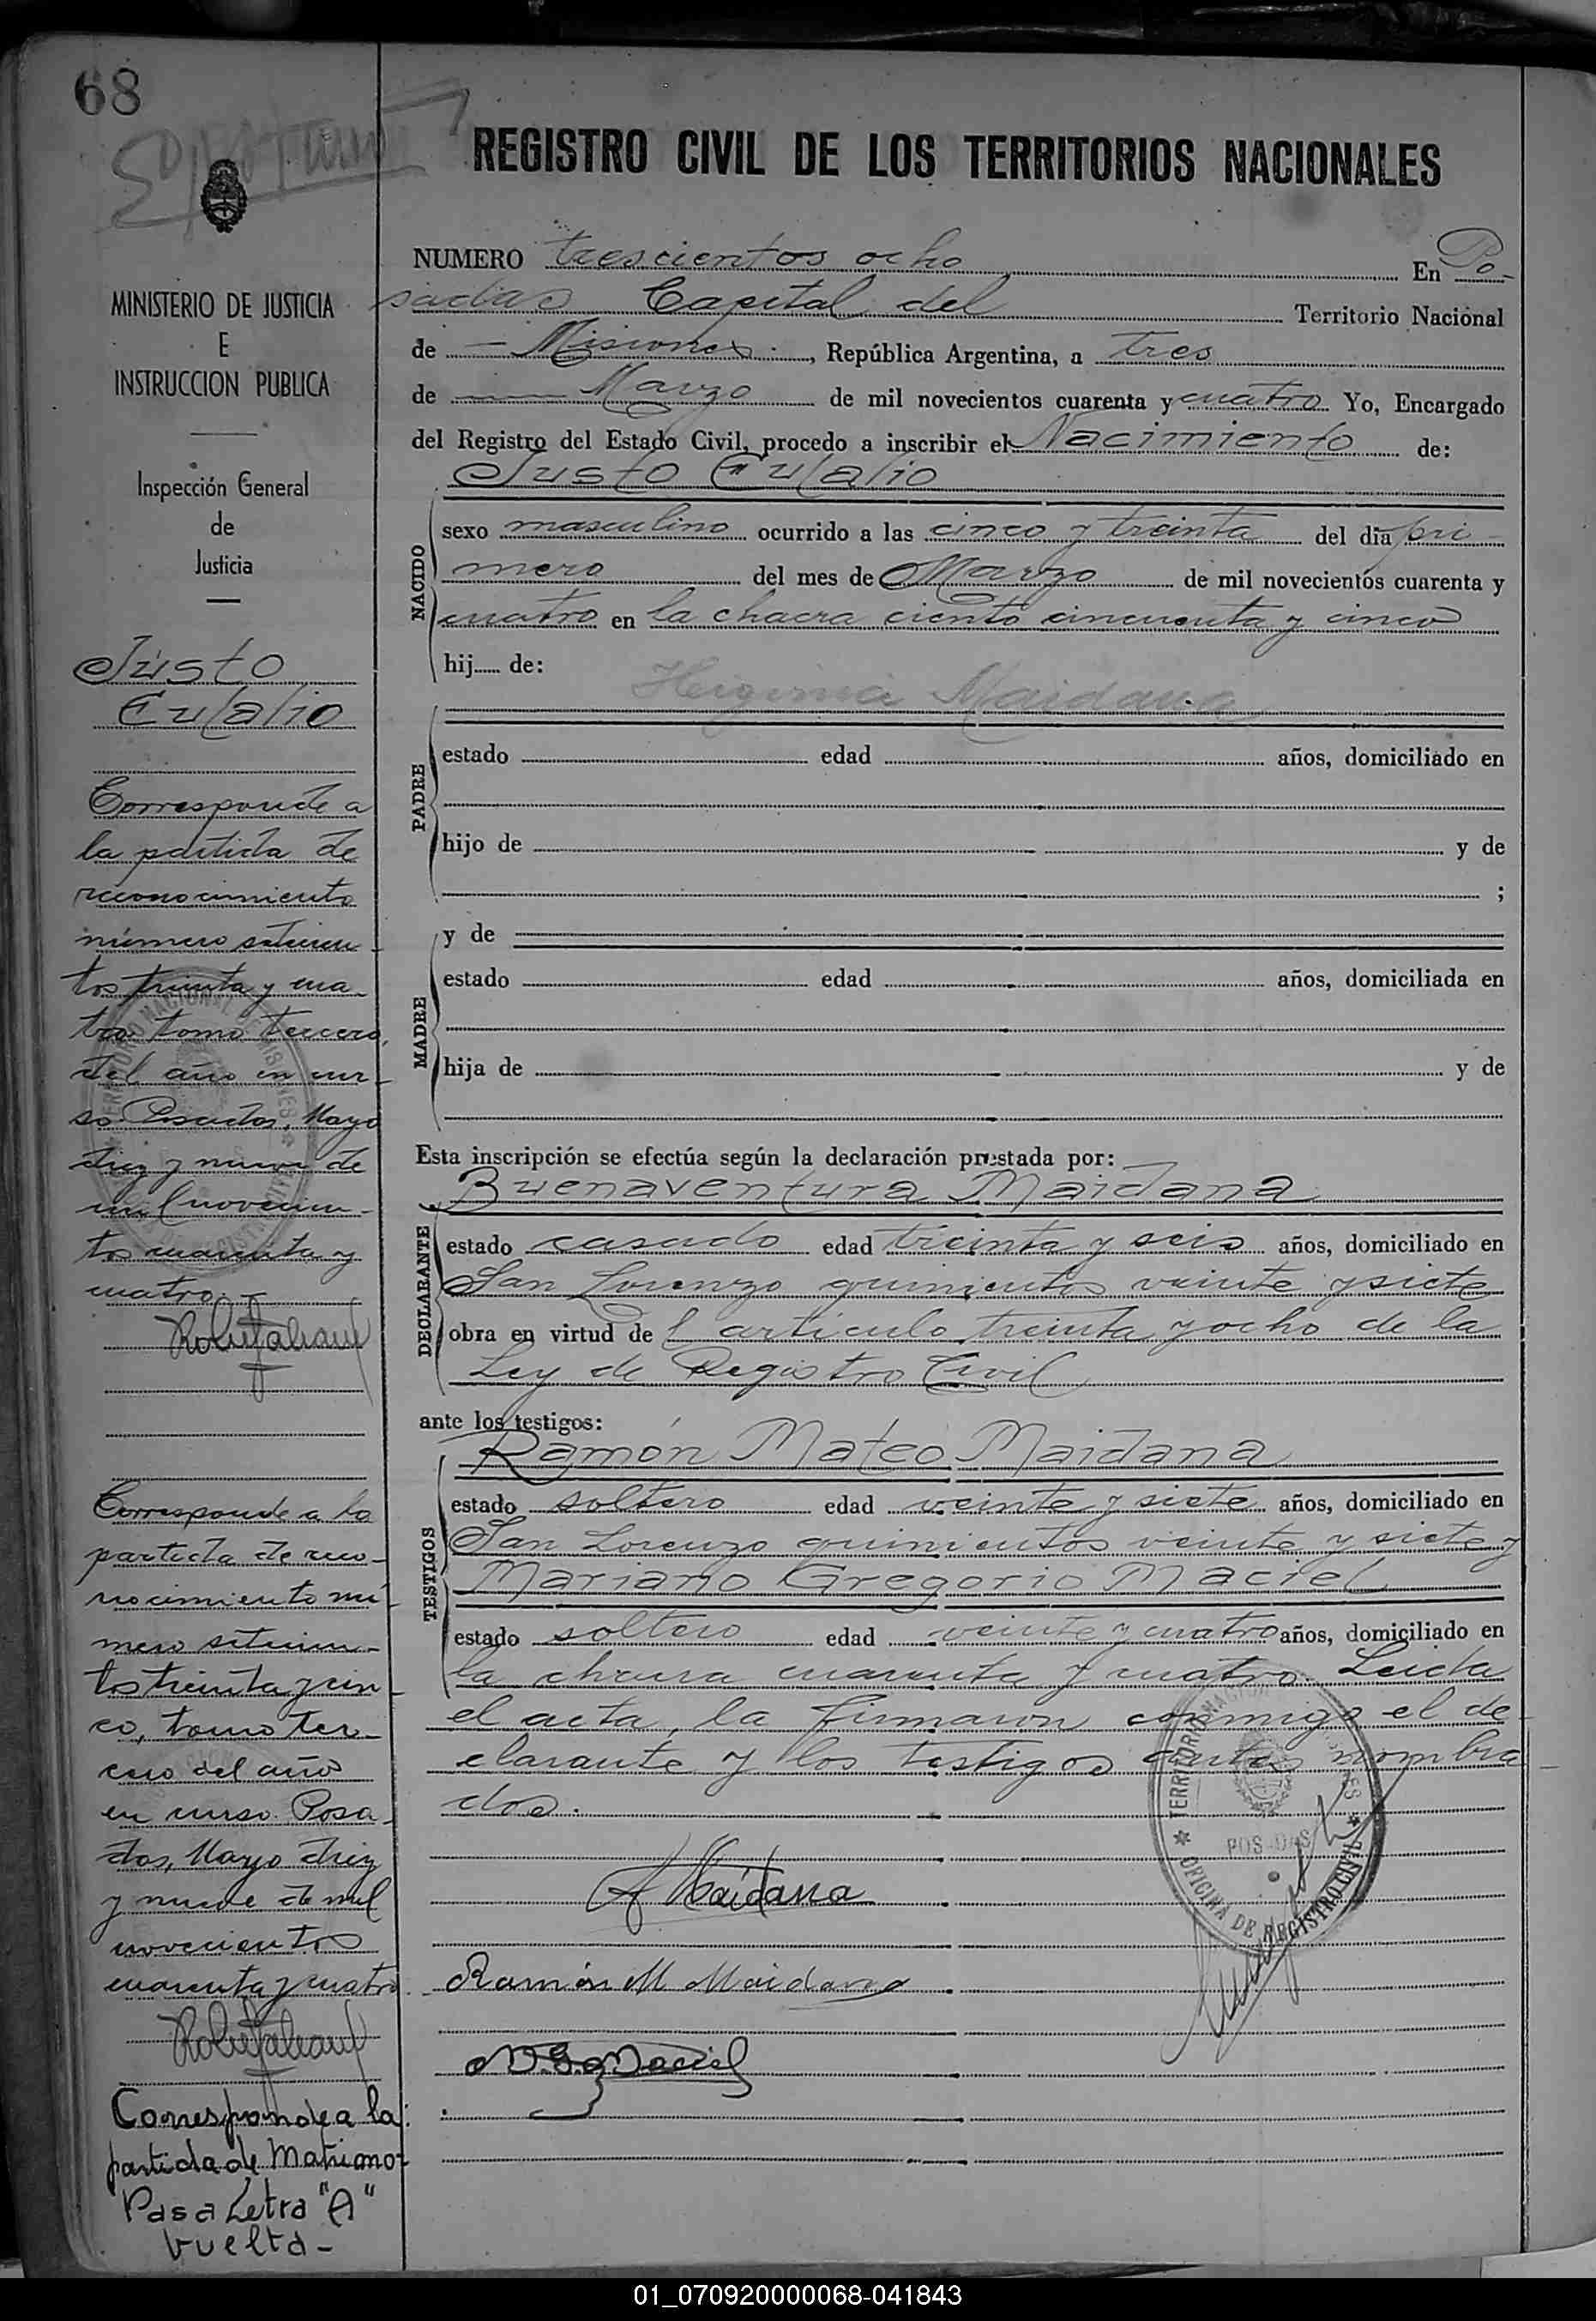 68
REGISTRO CIVIL DE LOS TERRITORIOS NACIONALES
MINISTERIO DE JUSTICIA
E
INSTRUCCION PUBLICA
Inspección General
de
Justicia
Justo
Eulalio
Corresponde a
la partida de
reconocimiento
número setecien-
tos treinta y cua-
tro tomo tercero,
del año en cur-
so. Posadas, Mayo
diez y nueve de
mil novecien-
tos cuarenta y
cuatro.-
Corresponde a la
partida de reco-
nocimiento nú-
mero setecien-
tos treinta y cin-
co, tomo ter-
cero del año
en curso. Posa-
das, Mayo diez
y nueve de mil
novecientos
cuarenta y cuatro.
Corresponde a la
partida de Matrimo-
Pasa Letra "A"
vuelta-
NUMERO trescientos ocho En Po-
sadas Capital del Territorio Nacional
de - Misiones, República Argentina, a tres
de Marzo de mil novecientos cuarenta y cuatro Yo, Encargado
del Registro del Estado Civil, procedo a inscribir el Nacimiento de:
Justo Eulalio
NACIDO
sexo masculino ocurrido a las cinco y treinta del día pri-
mero del mes de Marzo de mil novecientos cuarenta y
cuatro en la chacra ciento cincuenta y cinco
hij de:
Higinia Maidana
PADRE
estado edad años, domiciliado en
hijo de y de
;
y de
MADRE
estado edad años, domiciliada en
hija de y de
Esta inscripción se efectúa según la declaración prestada por:
Buenaventura Maidana
DECLARANTE
estado casado edad treinta y seis años, domiciliado en
San Lorenzo quinientos veinte y siete
obra en virtud del artículo treinta y ocho de la
Ley de Registro Civil
ante los testigos:
Ramón Mateo Maidana
TESTIGOS
estado soltero edad veinte y siete años, domiciliado en
San Lorenzo quinientos veinte y siete y
Mariano Gregorio Maciel
estado soltero edad veinte y cuatro años, domiciliado en
la chacra cuarenta y cuatro. Leída
el acta, la firmaron conmigo el de-
clarante y los testigos antes nombra-
dos.
TERRITORIO NACIONAL DE MISIONES
POSADAS
OFICINA DE REGISTRO CIVIL
Maidana
Ramón M Maidana
M. G. Maciel
01_070920000068-041843